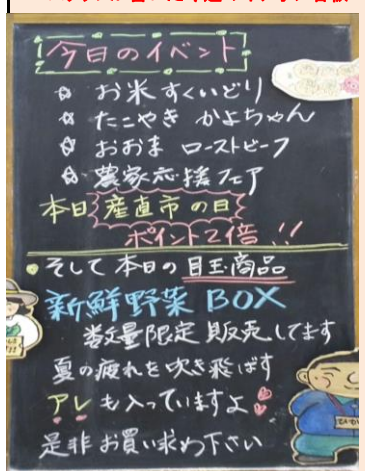 今日のイベント
☆ お米すくいどり
☆ たこやき かよちゃん
☆ おおま ローストビーフ
☆ 農家応援フェア
本日 産直市の日
ポイント2倍!!
• そして本日の目玉商品
新鮮野菜 BOX
数量限定 販売してます
夏の疲れを吹き飛ばす
アレも入っていますよ
是非お買い求め下さい